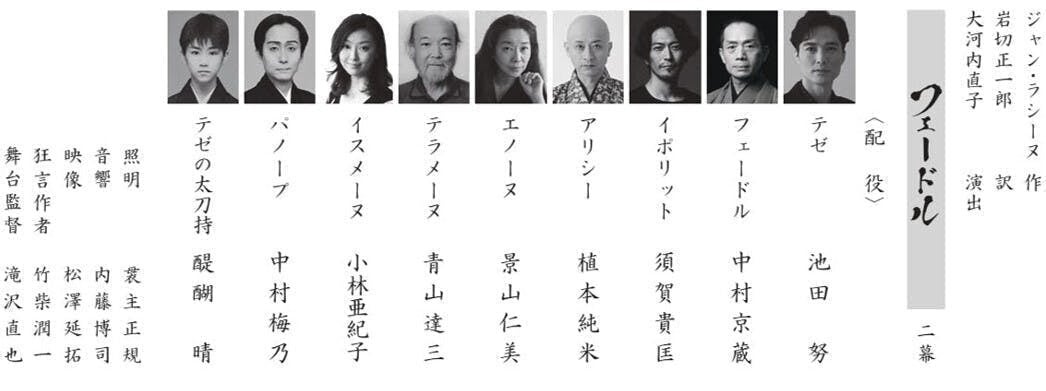 ジャン・ラシーヌ 作
岩切正一郎 訳
大河内直子 演出
フェードル 二幕
〈配役〉
テゼ 池田努
フェードル 中村京蔵
イポリット 須賀貴匡
アリシー 植本純米
エノーヌ 景山仁美
テラメーヌ 青山達三
イスメーヌ 小林亜紀子
パノープ 中村梅乃
テゼの太刀持 醍醐晴
照明 裳主正規
音響 内藤博司
映像 松澤延拓
狂言作者 竹柴潤一
舞台監督 滝沢直也